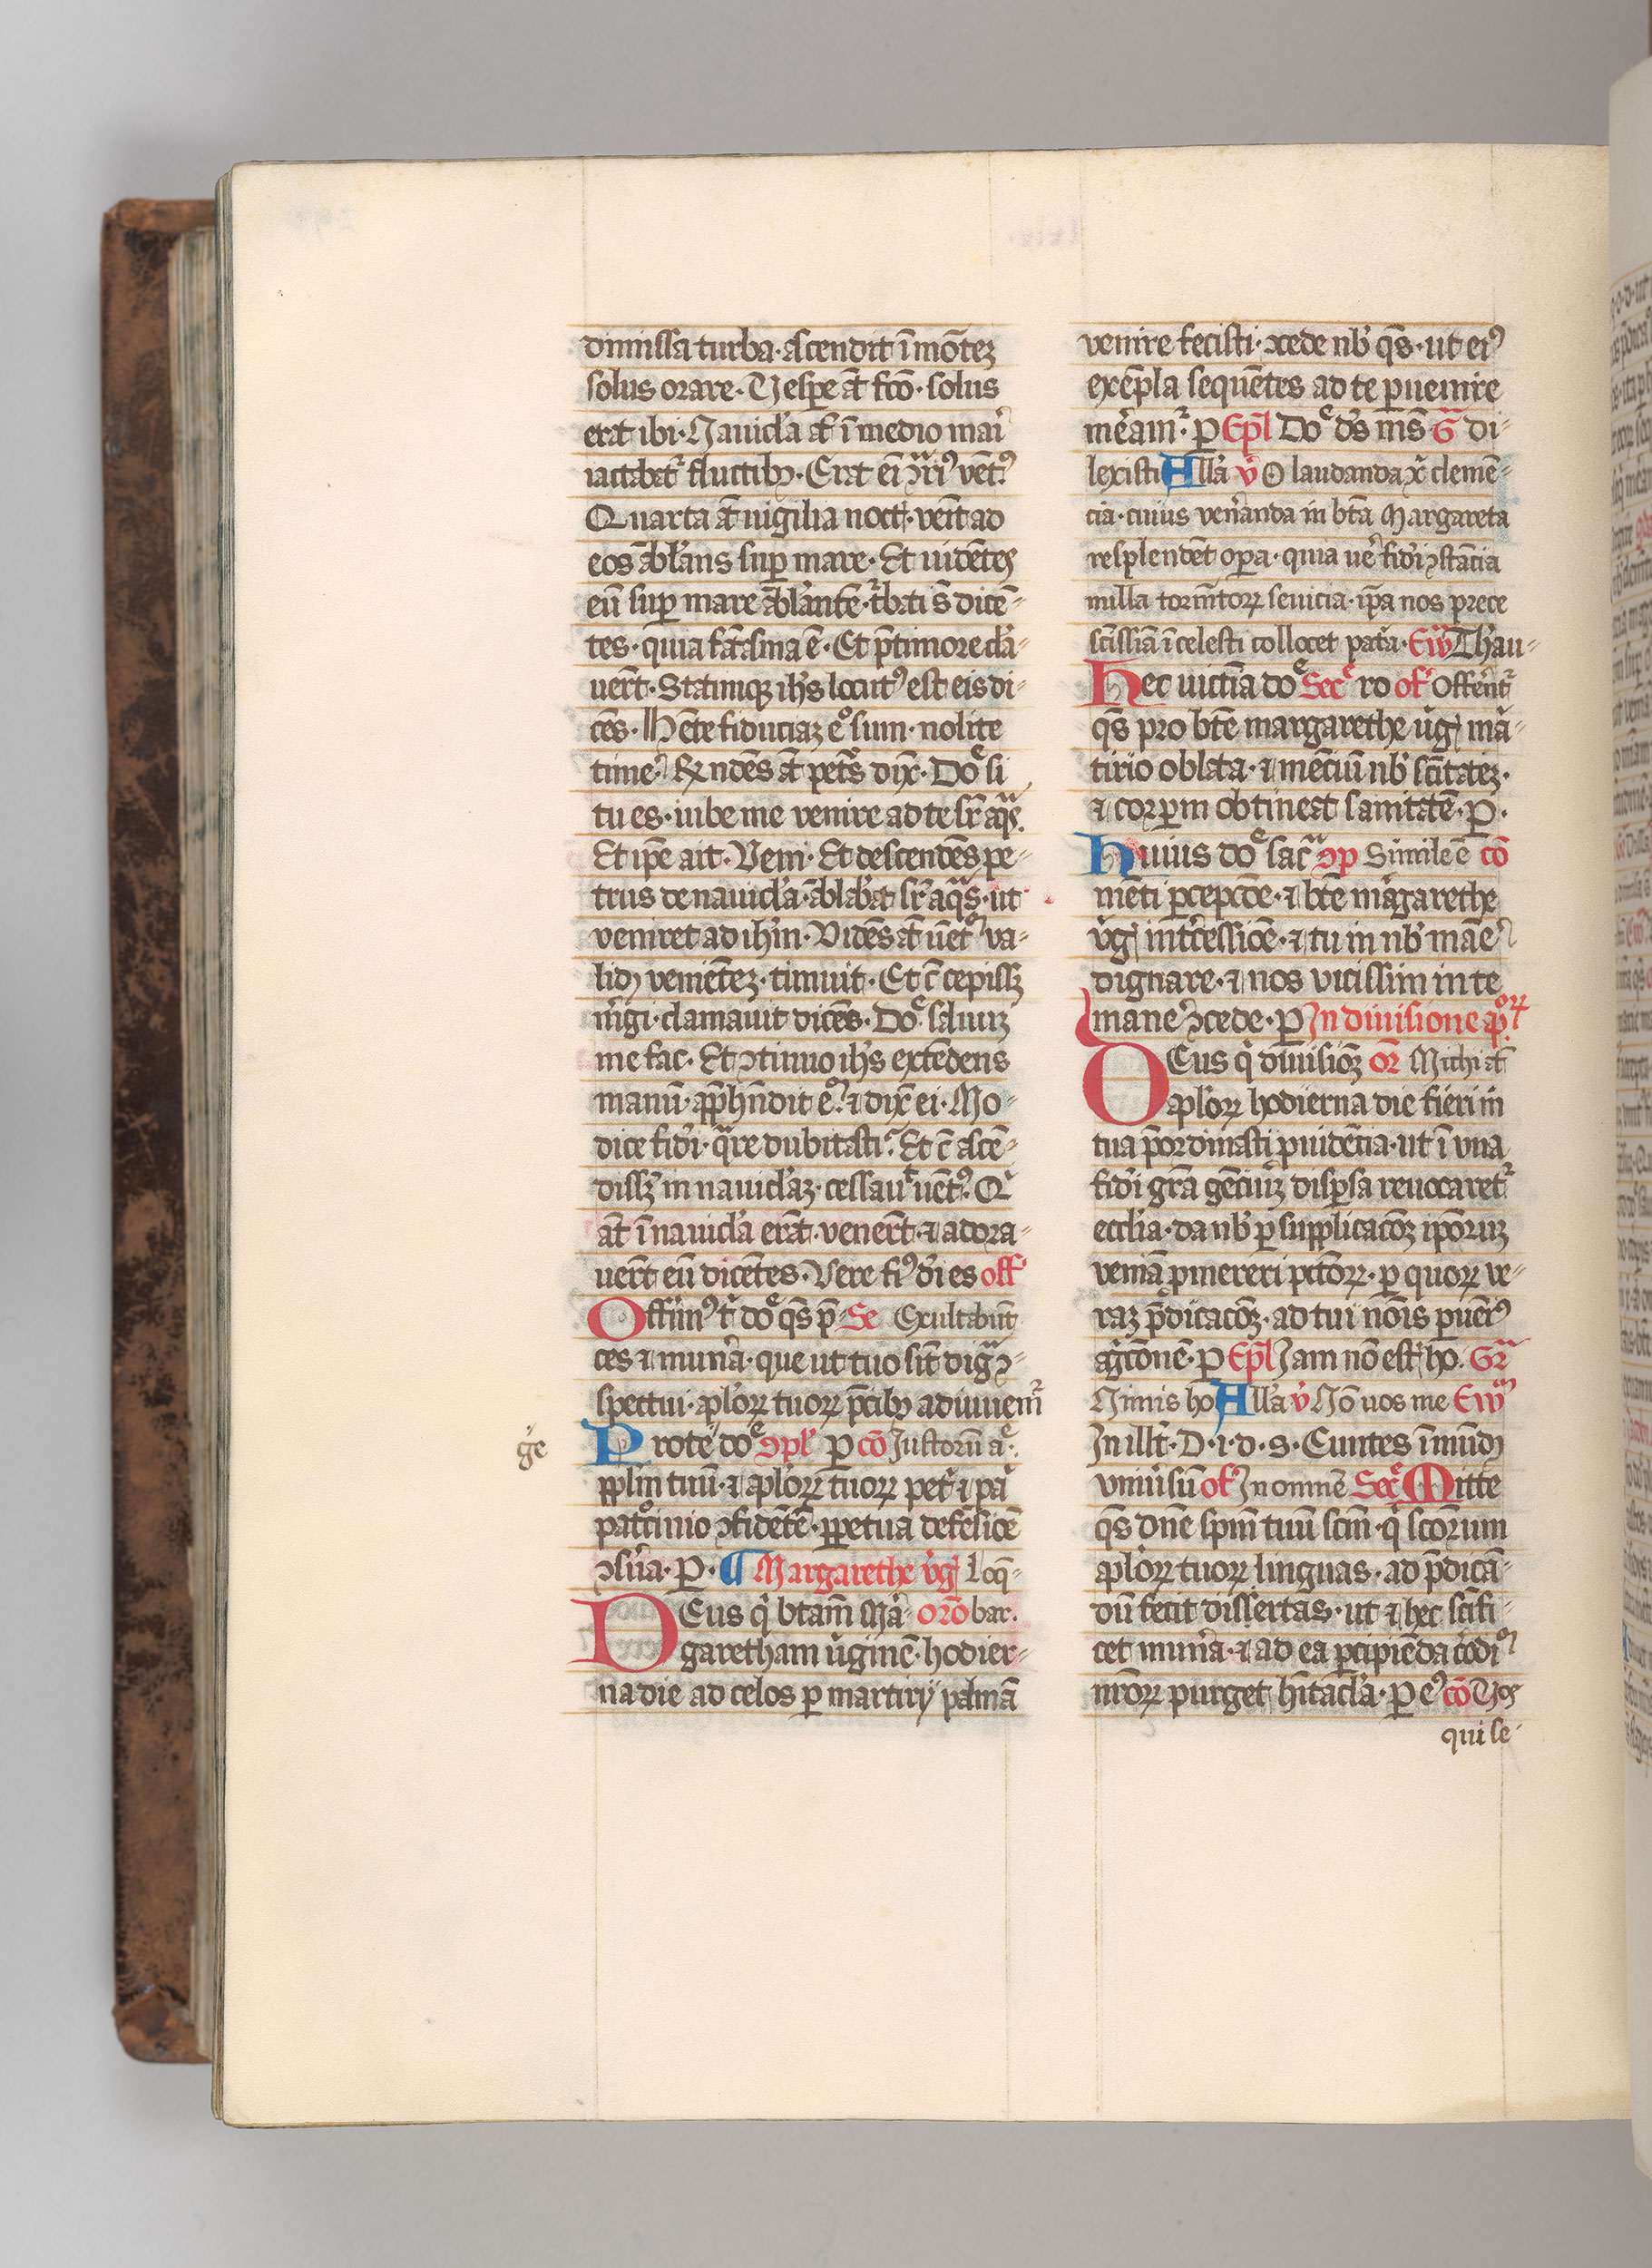 dimissa turba · ascendit ī mōtez
solus orare · Vespe āt fcō · solus
erat ibi · Nauicl'a at̄ ī medio mari
iactabat᷑ fluctibꝫ · Erat ei ꝯr̄iꝰ vētꝰ
Quarta āt uigilia noct · venit ad
eos ābl'ans suꝑ mare · Et uidētes
eū suꝑ mare ābl'antē · t᷑bati s̄ dicē-
tes · quia fātasma ē · Et p̄ timore cl'a-
uer̄t · Statimqꝫ ih's locutꝰ est eis di-
cēs · H'ete fiduciaz eº sum · nolite
time' · Rn̄dēs āt petr̄s dix̄ · Doᵉ si
tu es · iube me venire ad te sr̄ aqᵃs
Et ip̄e ait · Veni · Et descendēs pe-
trus de nauicl'a · ābl'abat sr̄ aqᵃs · ut
veniret ad ih'm · Vidēs āt uētū va-
lidū venietēz · timuit · Et c̄ cepissꝫ
m'gi · clamauit dicēs · Doᵉ saluuz
me fac · Et ꝯtinuo ih's extēdens
manū · app̄h'n̄dit eū · ⁊ dix̄ ei · Mo-
dice fid'i · qᵃre dubitasti · Et c̄ ascē-
dissꝫ in nauicl'az · cessauᵗ uētꝰ · Qⁱ
āt ī nauicl'a erāt · venerūt · ⁊ adora-
uer̄t eū dicētes · Vere fiꝰ d'i es off'
Offimꝰ tⁱ doᵉ qs̄ p̄- Se Exultabūt
ces ⁊ mun'a · que ut tuo sīt digᵃ ꝯ-
spectui · apl'oꝝ tuoꝝ p̄cibꝫ adiuuem᷑
ge
Prote doᵉ ꝯpl' ꝑ cō Iustorū aᵉ
pplm̄ tuū · ⁊ apl'oꝝ tuoꝝ petⁱ ⁊ pa
patºcinio ꝯfidētē · ꝑpetua defēsiōe
ꝯs'ua · P · ¶ Margarethe v'g' Loq̄-
Deus qⁱ btam̄ Ma- orō bar ·
garetham v'ginē · hodier-
na die ad celos ꝑ martiry palmā
venire fecisti · ꝯcede nb' qs̄ · ut eiꝰ
exēpla sequētes ad te ꝑuenire
m'eam᷑ · P Epl̄ Doᵉ d's ms̄ Ḡ di-
lexisti All'a v̄ O laudanda xⁱ clemē-
cia · cuius ven'anda in bt̄a Margareta
resplendēt oꝑa · quia ue' fid'i ꝯstācia
milla torm̄toꝝ seuicia · ip̄a nos prece
sc̄issiā ī celesti collocet patⁱa · Ew̄ Th'au-
Hec uictīa doᵉ Secᵉ ro of' Offerūt᷑
qs̄ pro btē margarethe v'g' mā-
tirio oblata · ⁊ mēciū nb' sc̄itatez ·
⁊ corꝑm obtineat sanitatē · P ·
Huius doᵉ sacᵃ ꝯp Simile ē cō
mēti ꝑcepcōe · ⁊ btē m'garethe
v'g' int'cessiōe · ⁊ tu in nb' mane'
dignare · ⁊ nos vicissim in te
mane' ꝯcede · P In diuisione apºꝝ
Deus qⁱ diuisiōꝫ or̄ Michi āt
apl'oꝝ hodierna die fieri in
tua p̄ordinasti puidētia · ut ī vna
fid'i gr̄a gēciuz disꝑsa reuocaret᷑
eccl'ia · da nb' ꝑ supplicacōꝫ ip̄oruz
veniā ꝓmereri pctōꝝ · ꝑ quoꝝ ve-
raz p̄dicacōꝫ · ad tui noīs ꝑuenꝰ
ag'cōnē · P Epl̄ Iam nō estⁱ ho · Grᵃ
Nimis ho All'a v̄ Nō uos me Ew̄
In ill'r · D · i · d · s · Euntes ī mūdū
vniu'sū of' In omnē Secᵉ Mitte
qs̄ dn̄e spm̄ tuū scm̄ · qⁱ sc̄orum
apl'oꝝ tuoꝝ linguas · ad p̄dicā-
dū fecit dissertas · ut ⁊ hec scīfi-
cet mun'a · ⁊ ad ea ꝑcipiēda cordiū
nr̄oꝝ purget h'itacl'a · P eꝰ cō Vos
qui se-